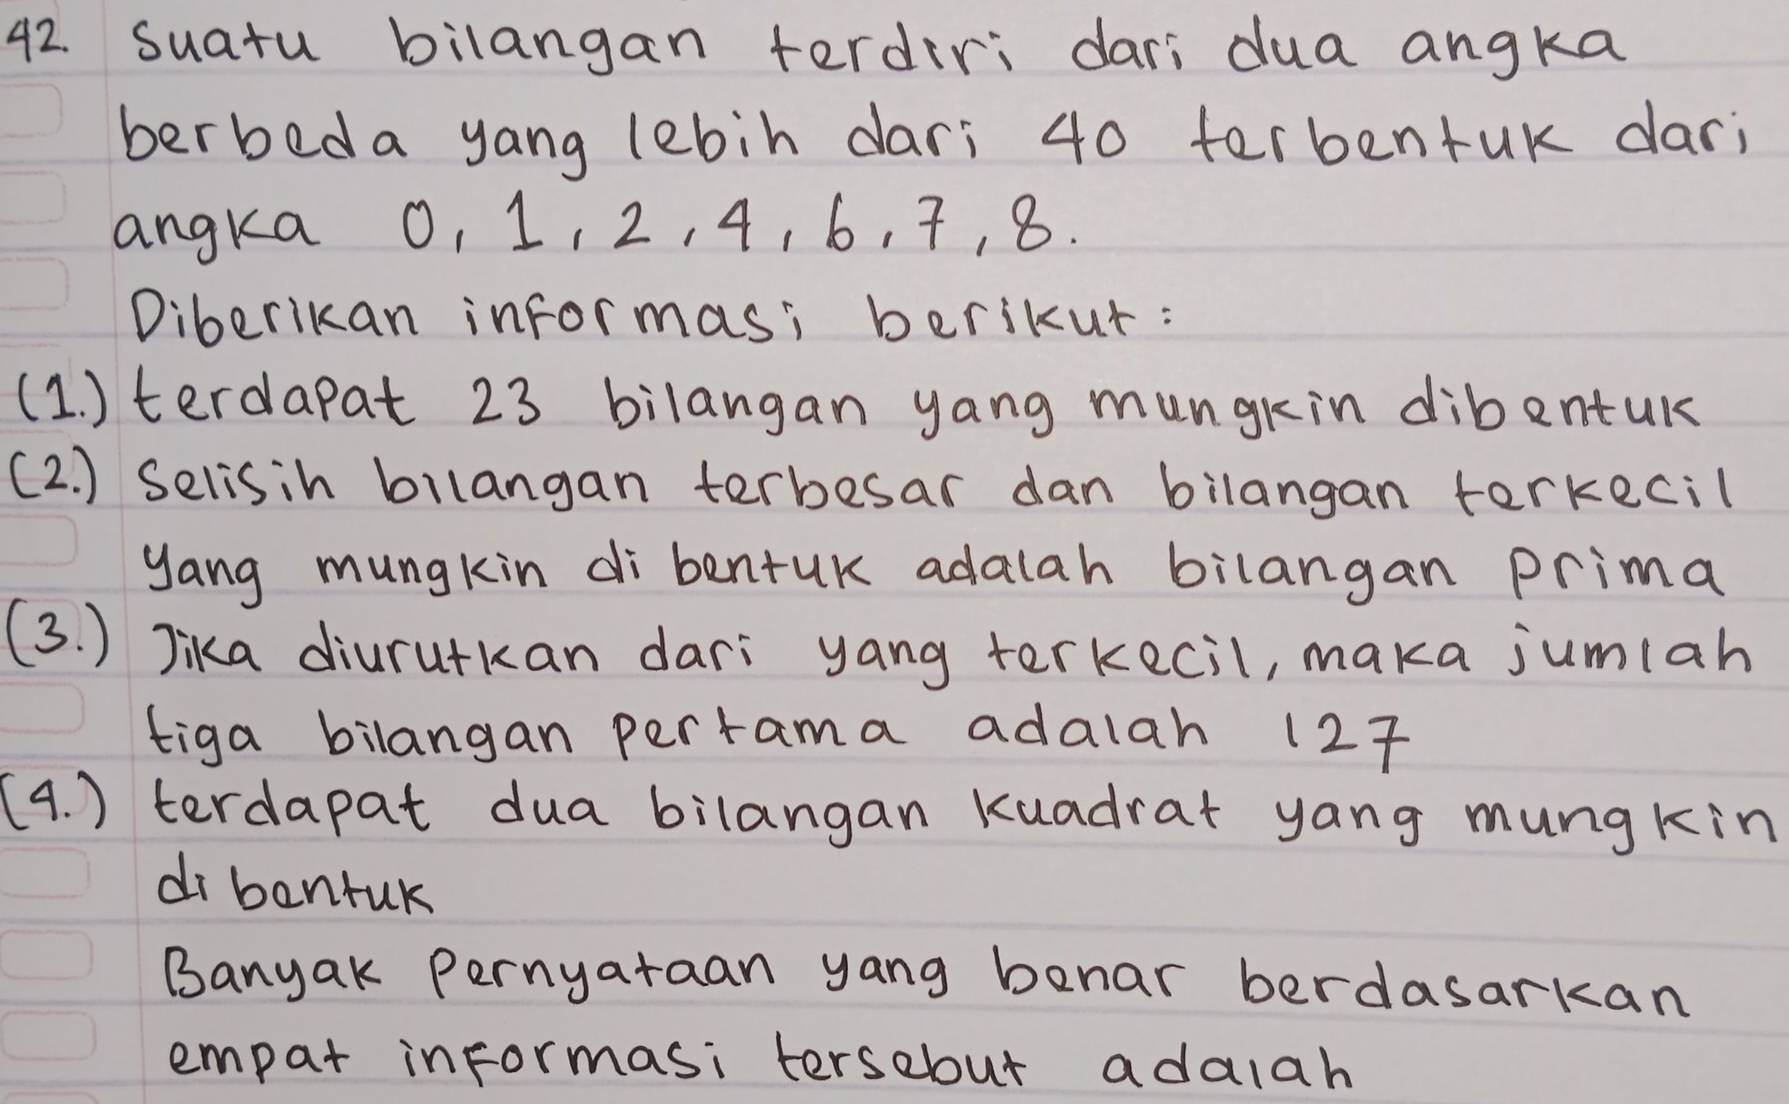 42. Suatu bilangan terdiri dari dua angka
berbeda yang lebih dari 40 terbentuk dari
angka 0, 1, 2, 4, 6, 7, 8.
Diberikan informasi berikut:
(1.) terdapat 23 bilangan yang mungkin dibentuk
(2.) Selisih bilangan terbesar dan bilangan terkecil
yang mungkin di bentuk adalah bilangan prima
(3.) Jika diurutkan dari yang terkecil, maka jumlah
tiga bilangan pertama adalah 127
(4.) terdapat dua bilangan kuadrat yang mungkin
di bentuk
Banyak Pernyataan yang benar berdasarkan
empat informasi tersebut adalah